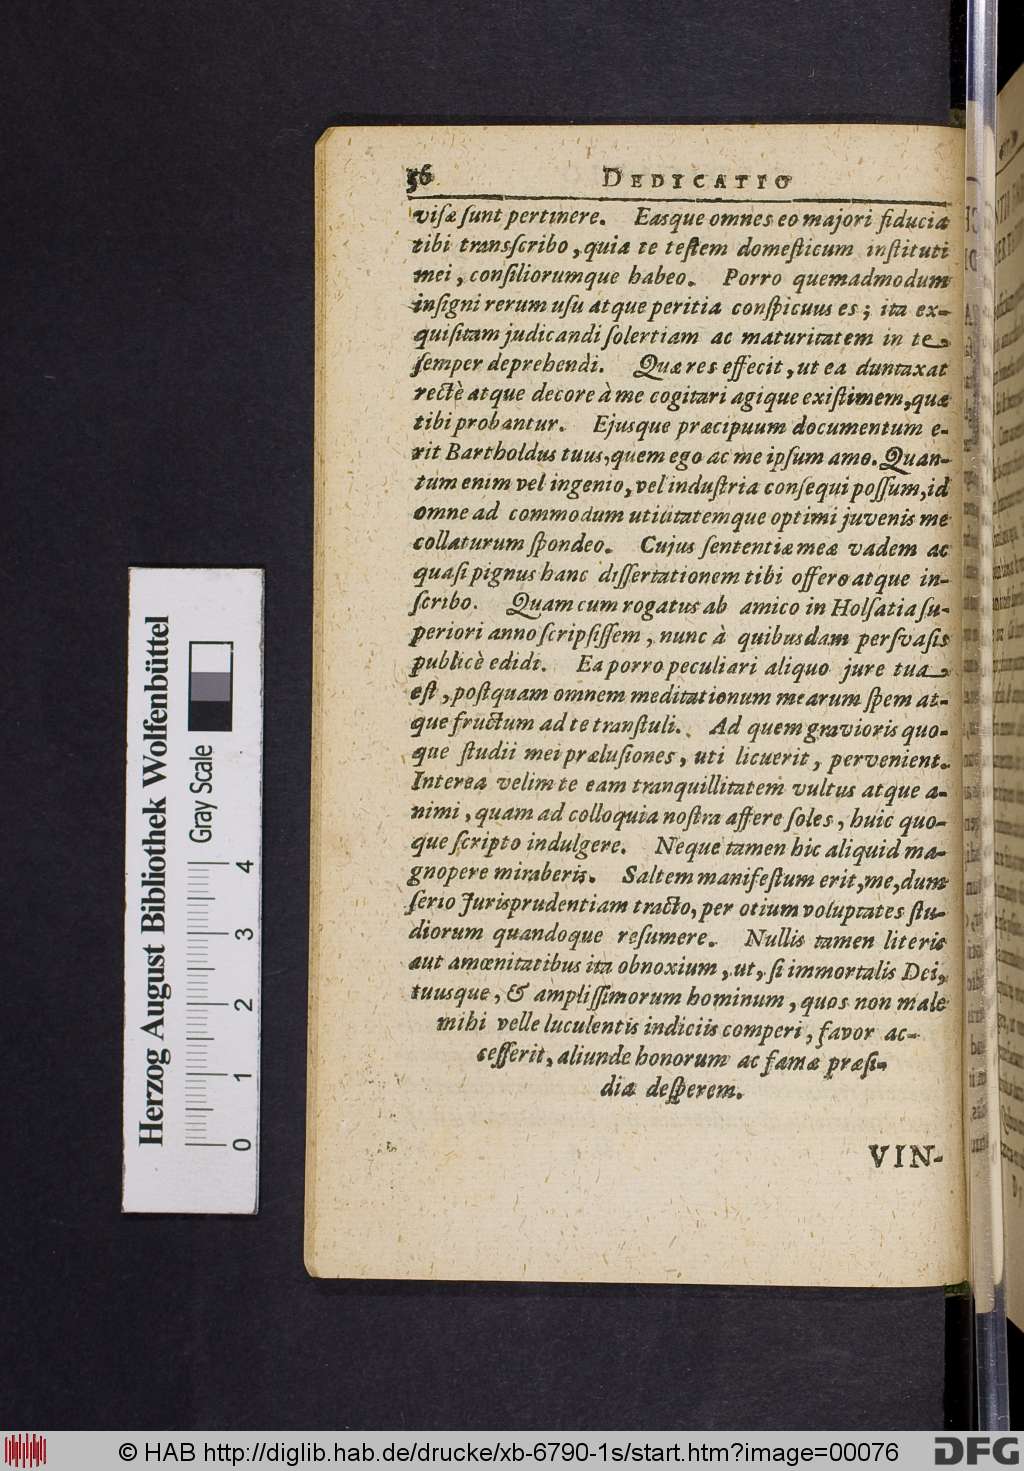 56 DEDICATIO
visæ sunt pertinere. Easque omnes eo majori fiducia
tibi transscribo, quia te testem domesticum instituti
mei, consiliorumque habeo. Porro quemadmodum
insigni rerum usu atque peritia conspicuus es; ita ex-
quisitam judicandi solertiam ac maturitatem in te
semper deprehendi. Quæ res effecit, ut ea duntaxat
rectè atque decore à me cogitari agique existimem, quæ
tibi probantur. Ejusque præcipuum documentum e-
rit Bartholdus tuus, quem ego ac me ipsum amo. Quan-
tum enim vel ingenio, vel industria consequi possum, id
omne ad commodum utilitatemque optimi juvenis me
collaturum spondeo. Cujus sententiæ meæ vadem ac
quasi pignus hanc dissertationem tibi offero atque in-
scribo. Quam cum rogatus ab amico in Holsatia su-
periori anno scripsissem, nunc à quibusdam persvasis
publicè edidi. Ea porro peculiari aliquo jure tua
est, postquam omnem meditationum mearum spem at-
que fructum ad te transtuli. Ad quem gravioris quo-
que studii mei prælusiones, uti licuerit, pervenient.
Interea velim te eam tranquillitatem vultus atque a-
nimi, quam ad colloquia nostra affere soles, huic quo-
que scripto indulgere. Neque tamen hic aliquid ma-
gnopere miraberis. Saltem manifestum erit, me, dum
serio Jurisprudentiam tracto, per otium voluptates stu-
diorum quandoque resumere. Nullis tamen literis
aut amœnitatibus ita obnoxium, ut, si immortalis Dei,
tuusque, & amplissimorum hominum, quos non male
mihi velle luculentis indiciis comperi, favor ac-
cesserit, aliunde honorum ac famæ præsi-
dia desperem.
VIN-
Herzog August Bibliothek Wolfenbüttel
Gray Scale
0 1 2 3 4
© HAB http://diglib.hab.de/drucke/xb-6790-1s/start.htm?image=00076
DFG